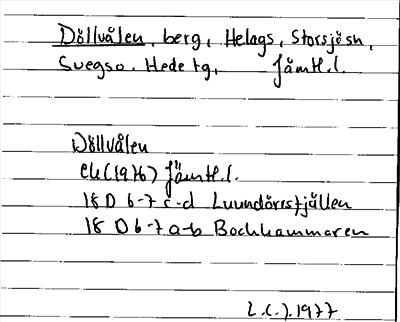 Döllvålen, berg, Helags, Storsjösn,
Svegso. Hede tg, Jämtl.l.
Döllvålen
Ek (1976) Jämtl.l.
18 D 6-7 c-d Lunndörrsfjällen
18 D 6-7 a-b Bockhammaren
L.C.J. 1977